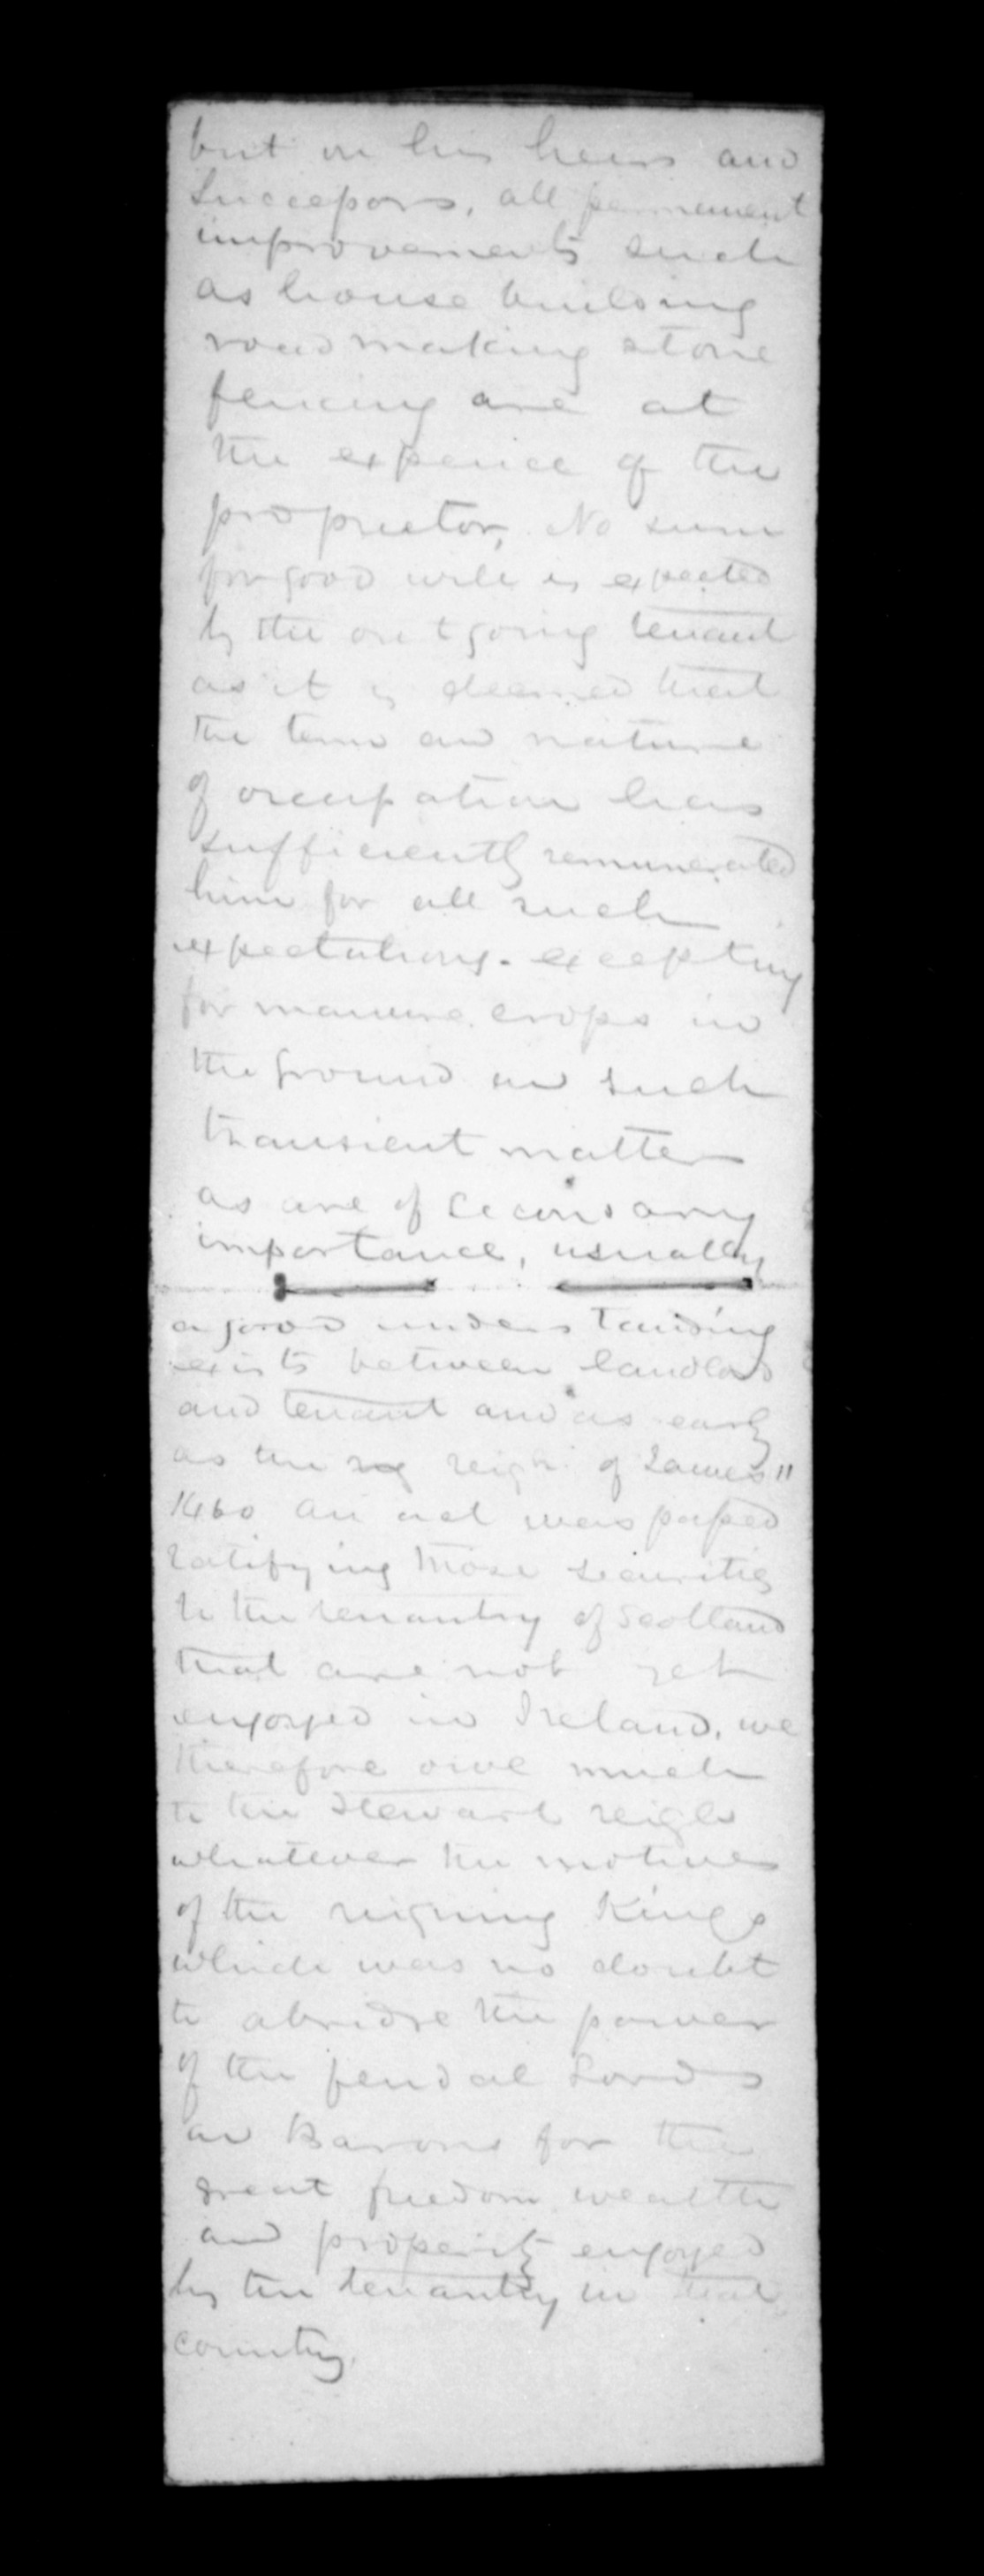 but on his heirs and
Successors, all permanent
improvements such
as house building
road making stone
fencing are at
the expence of the
proprietor, No sum
for good will is expected
by the outgoing tenant
as it is deemed that
the term and nature
of occupation has
sufficiently remunerated
him for all such
expectations. excepting
for manure crops in
the ground and such
transient matters
as are of secondary
importance, usually
a good understanding
exists between landlord
and tenant and as early
as the reign of James II
1460 an act was passed
ratifying those securities
to the tenantry of Scotland
that are not yet
enjoyed in Ireland. we
therefore owe much
to the Stewart reigns
whatever the motives
of the reigning Kings
which was no doubt
to abridge the power
of the feudal Lords
and Barons for the
great freedom wealth
and property enjoyed
by the tenantry in that
country.